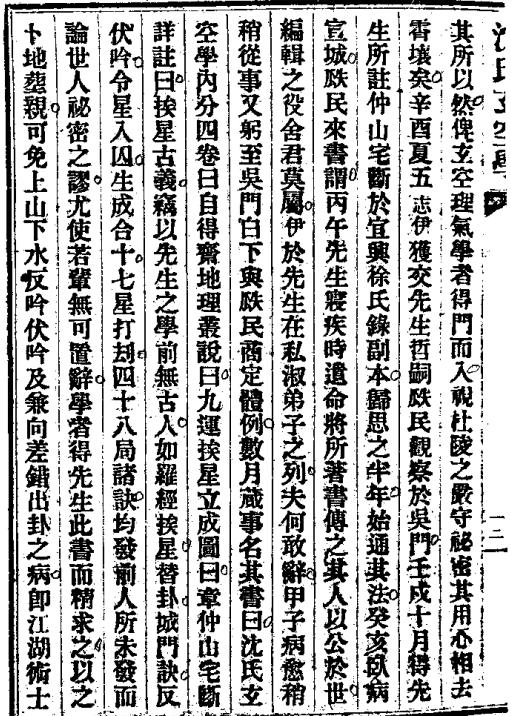 沈氏玄空學
一二
其所以然俾玄空理氣學者得門而入視杜陵之嚴守祕密其用心相去
霄壤矣辛酉夏五志伊獲交先生哲嗣瓞民觀察於吳門壬戌十月得先
生所註仲山宅斷於宜興徐氏錄副本歸思之半年始通其法癸亥臥病
宣城瓞民來書謂丙午先生寢疾時遺命將所著書傳之其人以公於世
編輯之役舍君莫屬伊於先生在私淑弟子之列夫何敢辭甲子病愈稍
稍從事又躬至吳門白下與瓞民商定體例數月蕆事名其書曰沈氏玄
空學內分四卷曰自得齋地理叢說曰九運挨星立成圖曰章仲山宅斷
詳註曰挨星古義竊以先生之學前無古人如羅經挨星替卦城門訣反
伏吟令星入囚生成合十七星打刧四十八局諸訣均發前人所未發而
論世人祕密之謬尤使若輩無可置辭學者得先生此書而精求之以之
卜地塟親可免上山下水反吟伏吟及兼向差錯出卦之病卽江湖術士